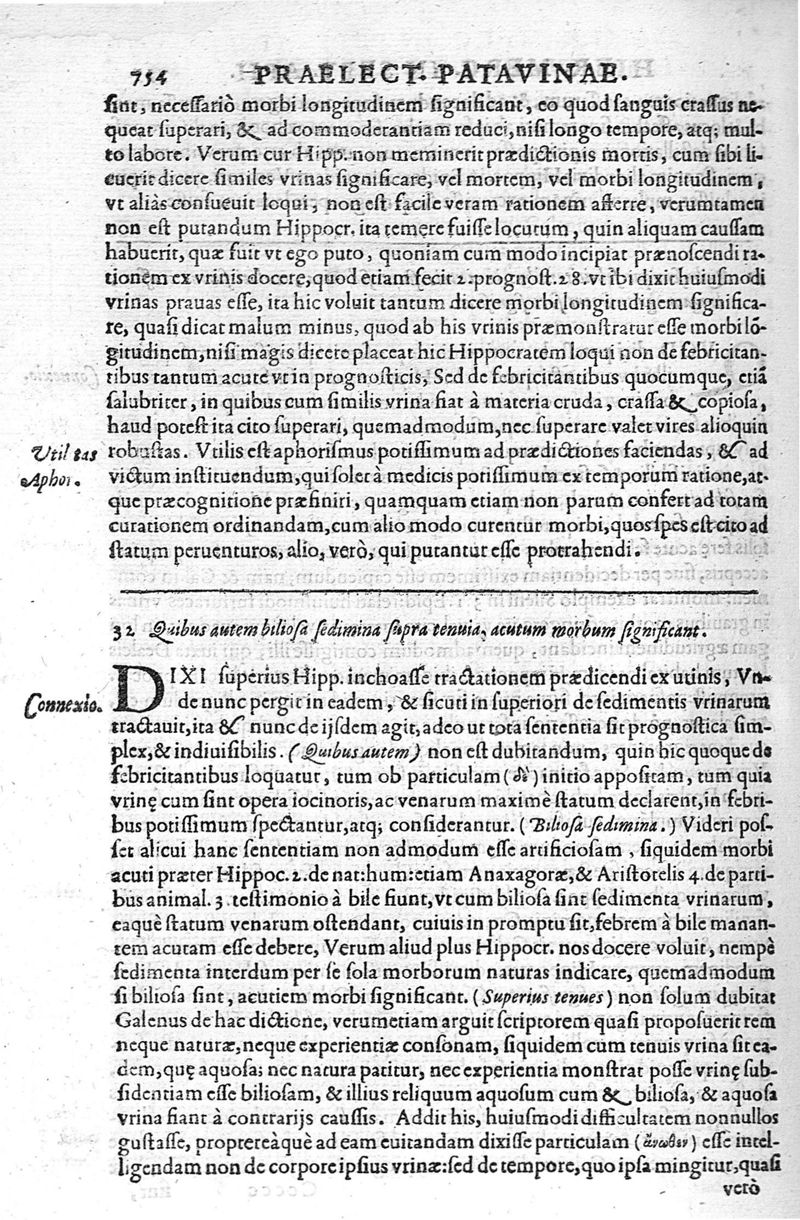 754 PRAELECT. PATAVINAE.
ſint, neceſſariò morbi longitudinem ſignificant, eo quod ſanguis craſſus ne-
queat ſuperari, & ad commoderantiam reduci, niſi longo tempore, atq; mul-
to labore. Verum cur Hipp. non meminerit prædictionis mortis, cum ſibi li-
cuerit dicere ſimiles vrinas ſignificare, vel mortem, vel morbi longitudinem,
vt aliàs conſueuit loqui, non eſt facile veram rationem afferre, verumtamen
non eſt putandum Hippocr. ita temere fuiſſe locutum, quin aliquam cauſſam
habuerit, quæ fuit vt ego puto, quoniam cum modo incipiat prænoſcendi ra-
tionem ex vrinis docere, quod etiam fecit 2. prognoſt. 28. vt ibi dixit huiuſmodi
vrinas prauas eſſe, ita hic voluit tantum dicere morbi longitudinem ſignifica-
re, quaſi dicat malum minus, quod ab his vrinis præmonſtratur eſſe morbi lō-
gitudinem, niſi magis dicere placeat hic Hippocratem loqui non de febricitan-
tibus tantum acute vt in prognoſticis, Sed de febricitantibus quocumque, etiā
ſalubriter, in quibus cum ſimilis vrina fiat à materia cruda, craſſa & copioſa,
haud poteſt ita cito ſuperari, quemadmodum, nec ſuperare valet vires alioquin
Vtilitas robuſtas. Vtilis eſt aphoriſmus potiſſimum ad prædictiones faciendas, & ad
Aphor. victum inſtituendum, qui ſolet à medicis potiſſimum ex temporum ratione, at-
que præcognitione præfiniri, quamquam etiam non parum confert ad totam
curationem ordinandam, cum alio modo curentur morbi, quos ſpes eſt cito ad
ſtatum peruenturos, alio, verò, qui putantur eſſe protrahendi.
32 Quibus autem bilioſa ſedimina ſupra tenuia, acutum morbum ſignificant.
DIXI ſuperius Hipp. inchoaſſe tractationem prædicendi ex utinis, Vn-
Connexio. de nunc pergit in eadem, & ſicuti in ſuperiori de ſedimentis vrinarum
tractauit, ita & nunc de ijſdem agit, adeo ut tota ſententia ſit prognoſtica ſim-
plex, & indiuiſibilis. (Quibus autem) non eſt dubitandum, quin hic quoque de
febricitantibus loquatur, tum ob particulam (δὲ) initio appoſitam, tum quia
vrinę cum ſint opera iocinoris, ac venarum maximè ſtatum declarent, in febri-
bus potiſſimum ſpectantur, atq; conſiderantur. (Bilioſa ſedimina.) Videri poſ-
ſet alicui hanc ſententiam non admodum eſſe artificioſam, ſiquidem morbi
acuti præter Hippoc. 2. de nat: hum: etiam Anaxagoræ, & Ariſtotelis 4. de parti-
bus animal. 3. teſtimonio à bile fiunt, vt cum bilioſa ſint ſedimenta vrinarum,
eaquè ſtatum venarum oſtendant, cuiuis in promptu ſit, febrem à bile manan-
tem acutam eſſe debere, Verum aliud plus Hippocr. nos docere voluit, nempè
ſedimenta interdum per ſe ſola morborum naturas indicare, quemadmodum
ſi bilioſa ſint, acutiem morbi ſignificant. (Superius tenues) non ſolum dubitat
Galenus de hac dictione, verumetiam arguit ſcriptorem quaſi propoſuerit rem
neque naturæ, neque experientiæ conſonam, ſiquidem cum tenuis vrina ſit ea-
dem, quę aquoſa; nec natura patitur, nec experientia monſtrat poſſe vrinę ſub-
ſidentiam eſſe bilioſam, & illius reliquum aquoſum cum & bilioſa, & aquoſa
vrina fiant à contrarijs cauſſis. Addit his, huiuſmodi difficultatem nonnullos
guſtaſſe, proptereàquè ad eam euitandam dixiſſe particulam (ἄνωθεν) eſſe intel-
ligendam non de corpore ipſius vrinæ: ſed de tempore, quo ipſa mingitur, quaſi
verò